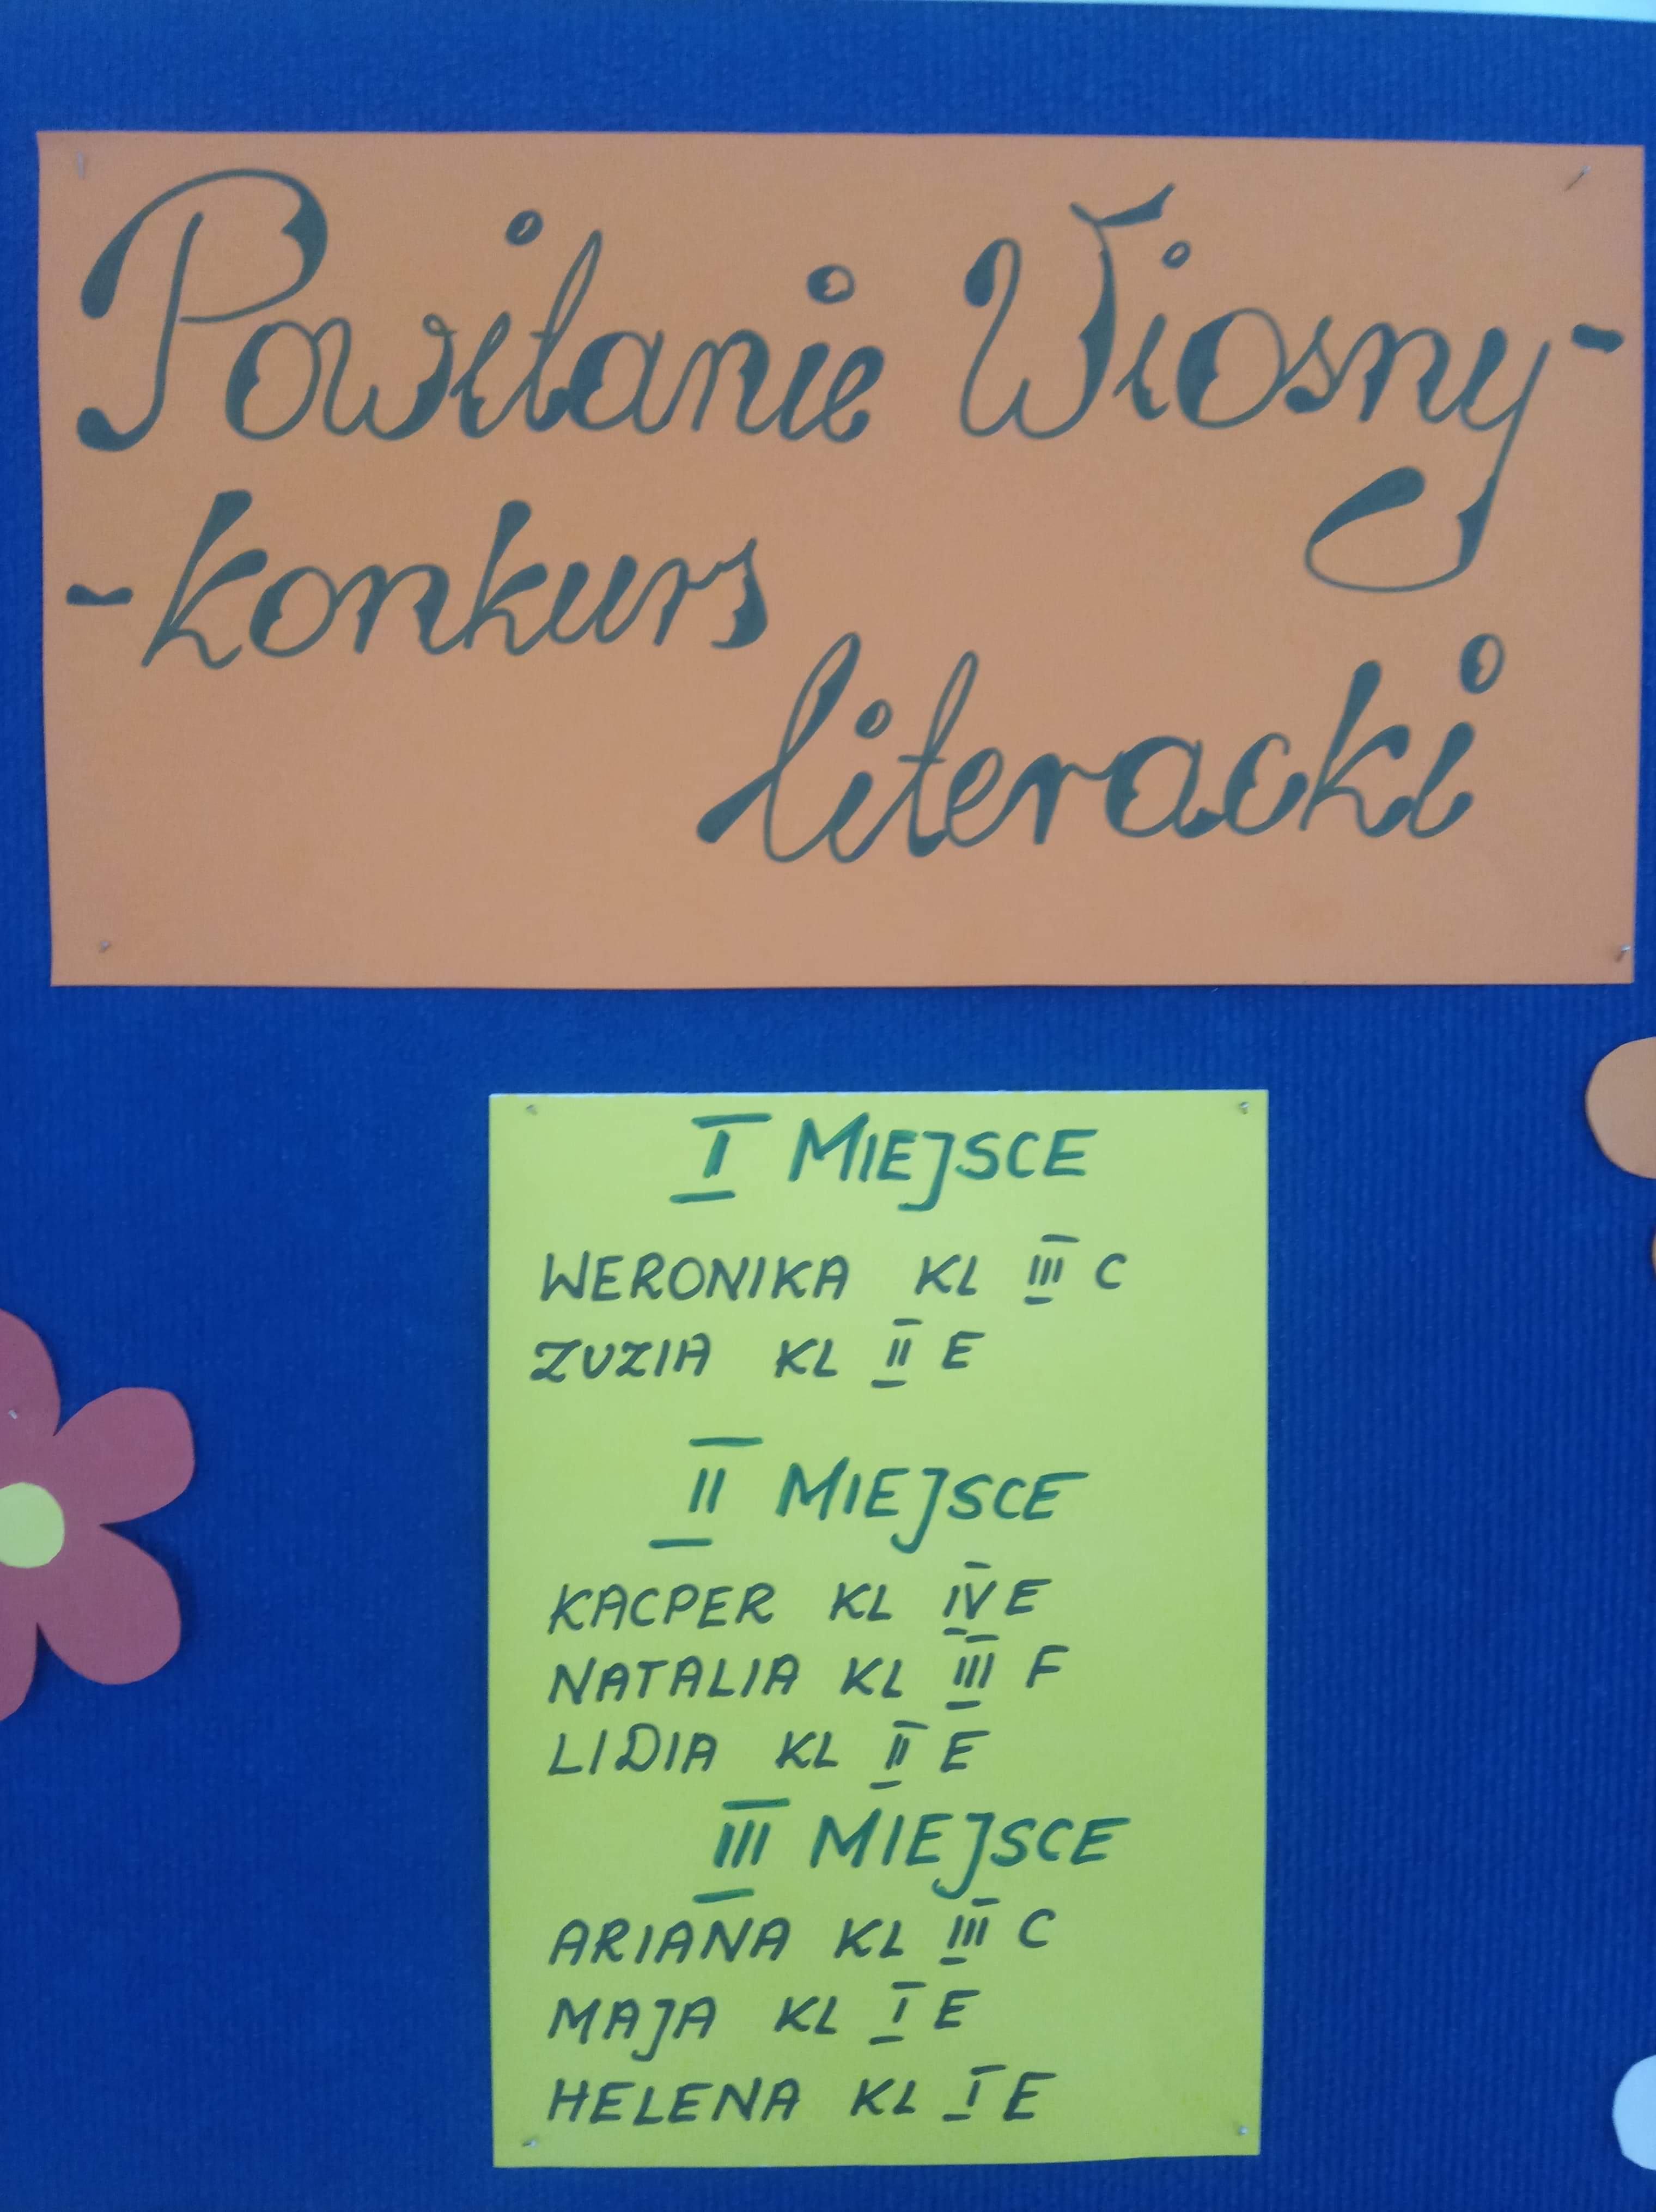 Powitanie Wiosny-
-konkurs
literacki
I MIEJSCE
WERONIKA KL III C
ZUZIA KL II E
II MIEJSCE
KACPER KL IV E
NATALIA KL III F
LIDIA KL II E
III MIEJSCE
ARIANA KL III C
MAJA KL I E
HELENA KL I E